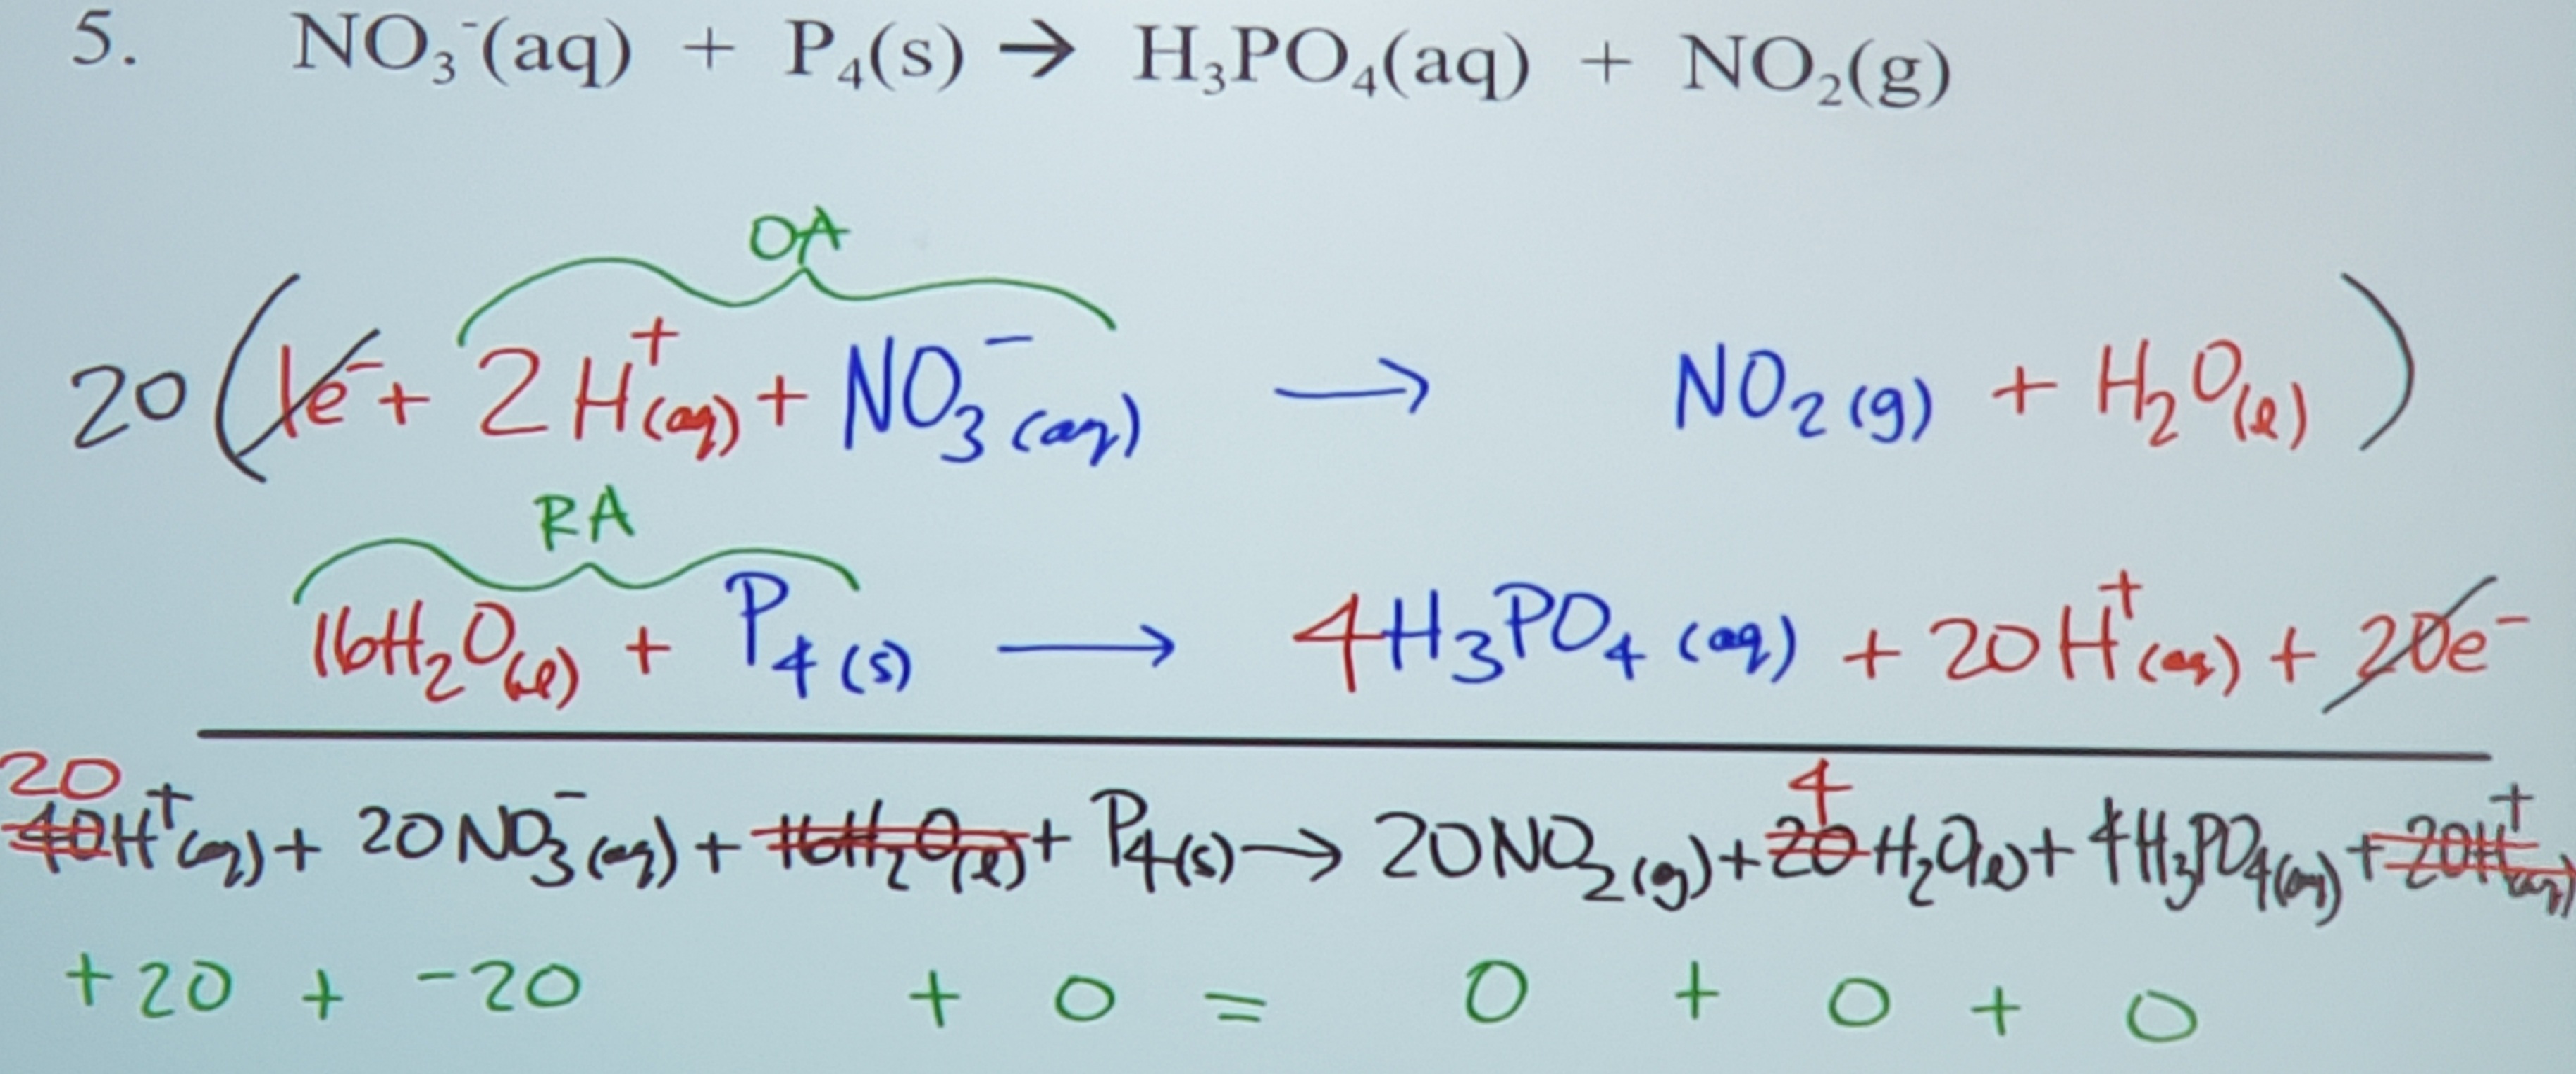 5. NO₃⁻(aq) + P₄(s) → H₃PO₄(aq) + NO₂(g)
OA
20(1e⁻ + 2H⁺(aq) + NO₃⁻(aq) → NO₂(g) + H₂O(l))
RA
16H₂O(l) + P₄(s) → 4H₃PO₄(aq) + 20H⁺(aq) + 20e⁻
20 4
40H⁺(aq) + 20NO₃⁻(aq) + 16H₂O(l) + P₄(s) → 20NO₂(g) + 20H₂O(l) + 4H₃PO₄(aq) + 20H⁺(aq)
+20 + -20 + 0 = 0 + 0 + 0